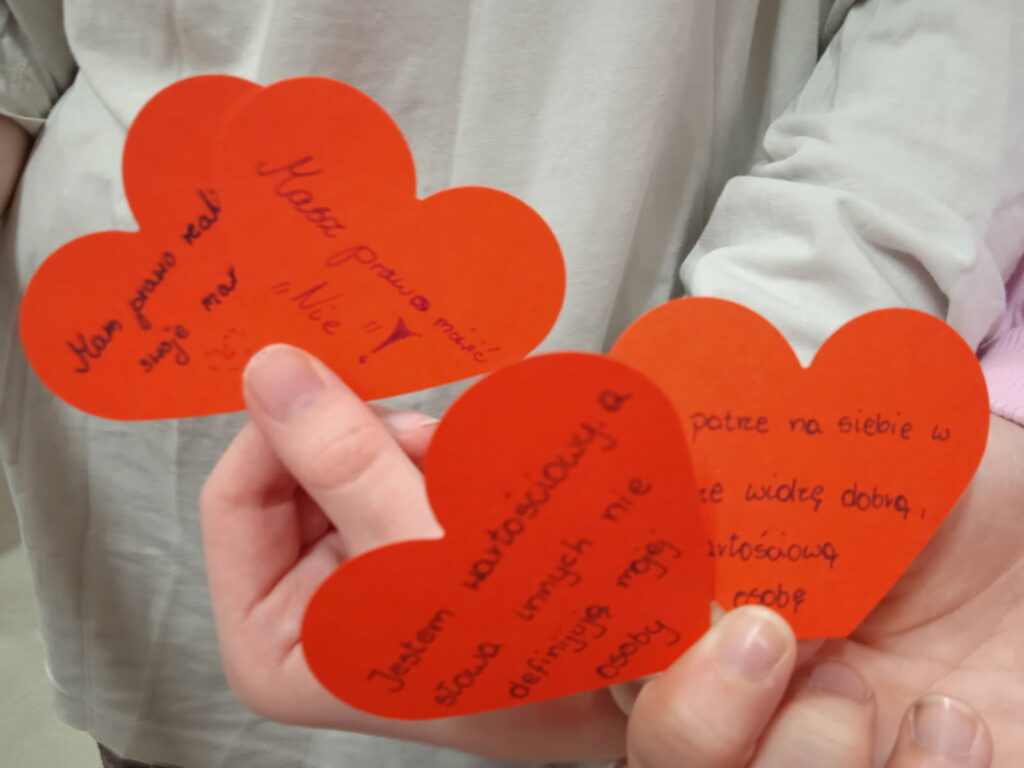 Mam prawo real
swoje mar
Masz prawo mówić
„Nie"!
Jestem wartościowy, a
słowa innych nie
definijują mojej
osoby
patrze na siebie w
ze widzę dobrą,
artościową
osobę